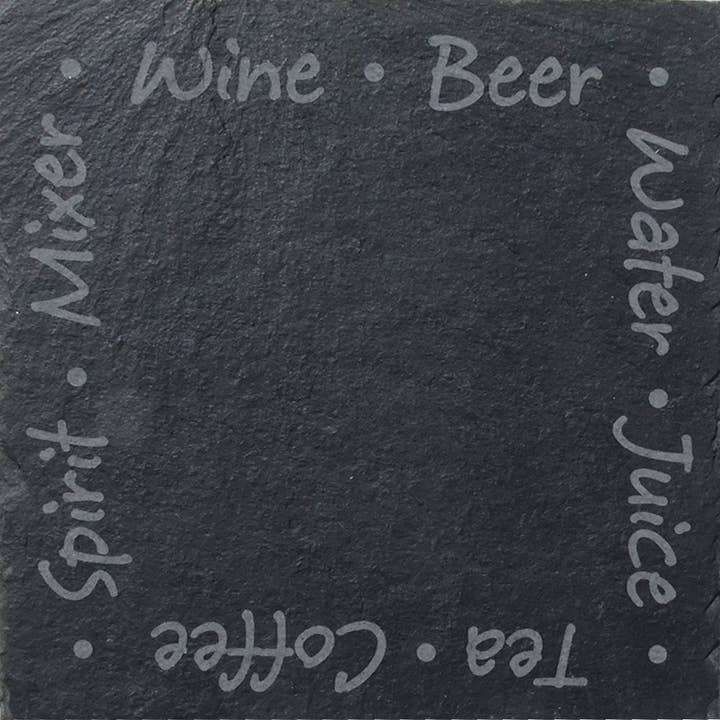 Wine • Beer •
Water • Juice •
Tea • Coffee •
Spirit • Mixer •